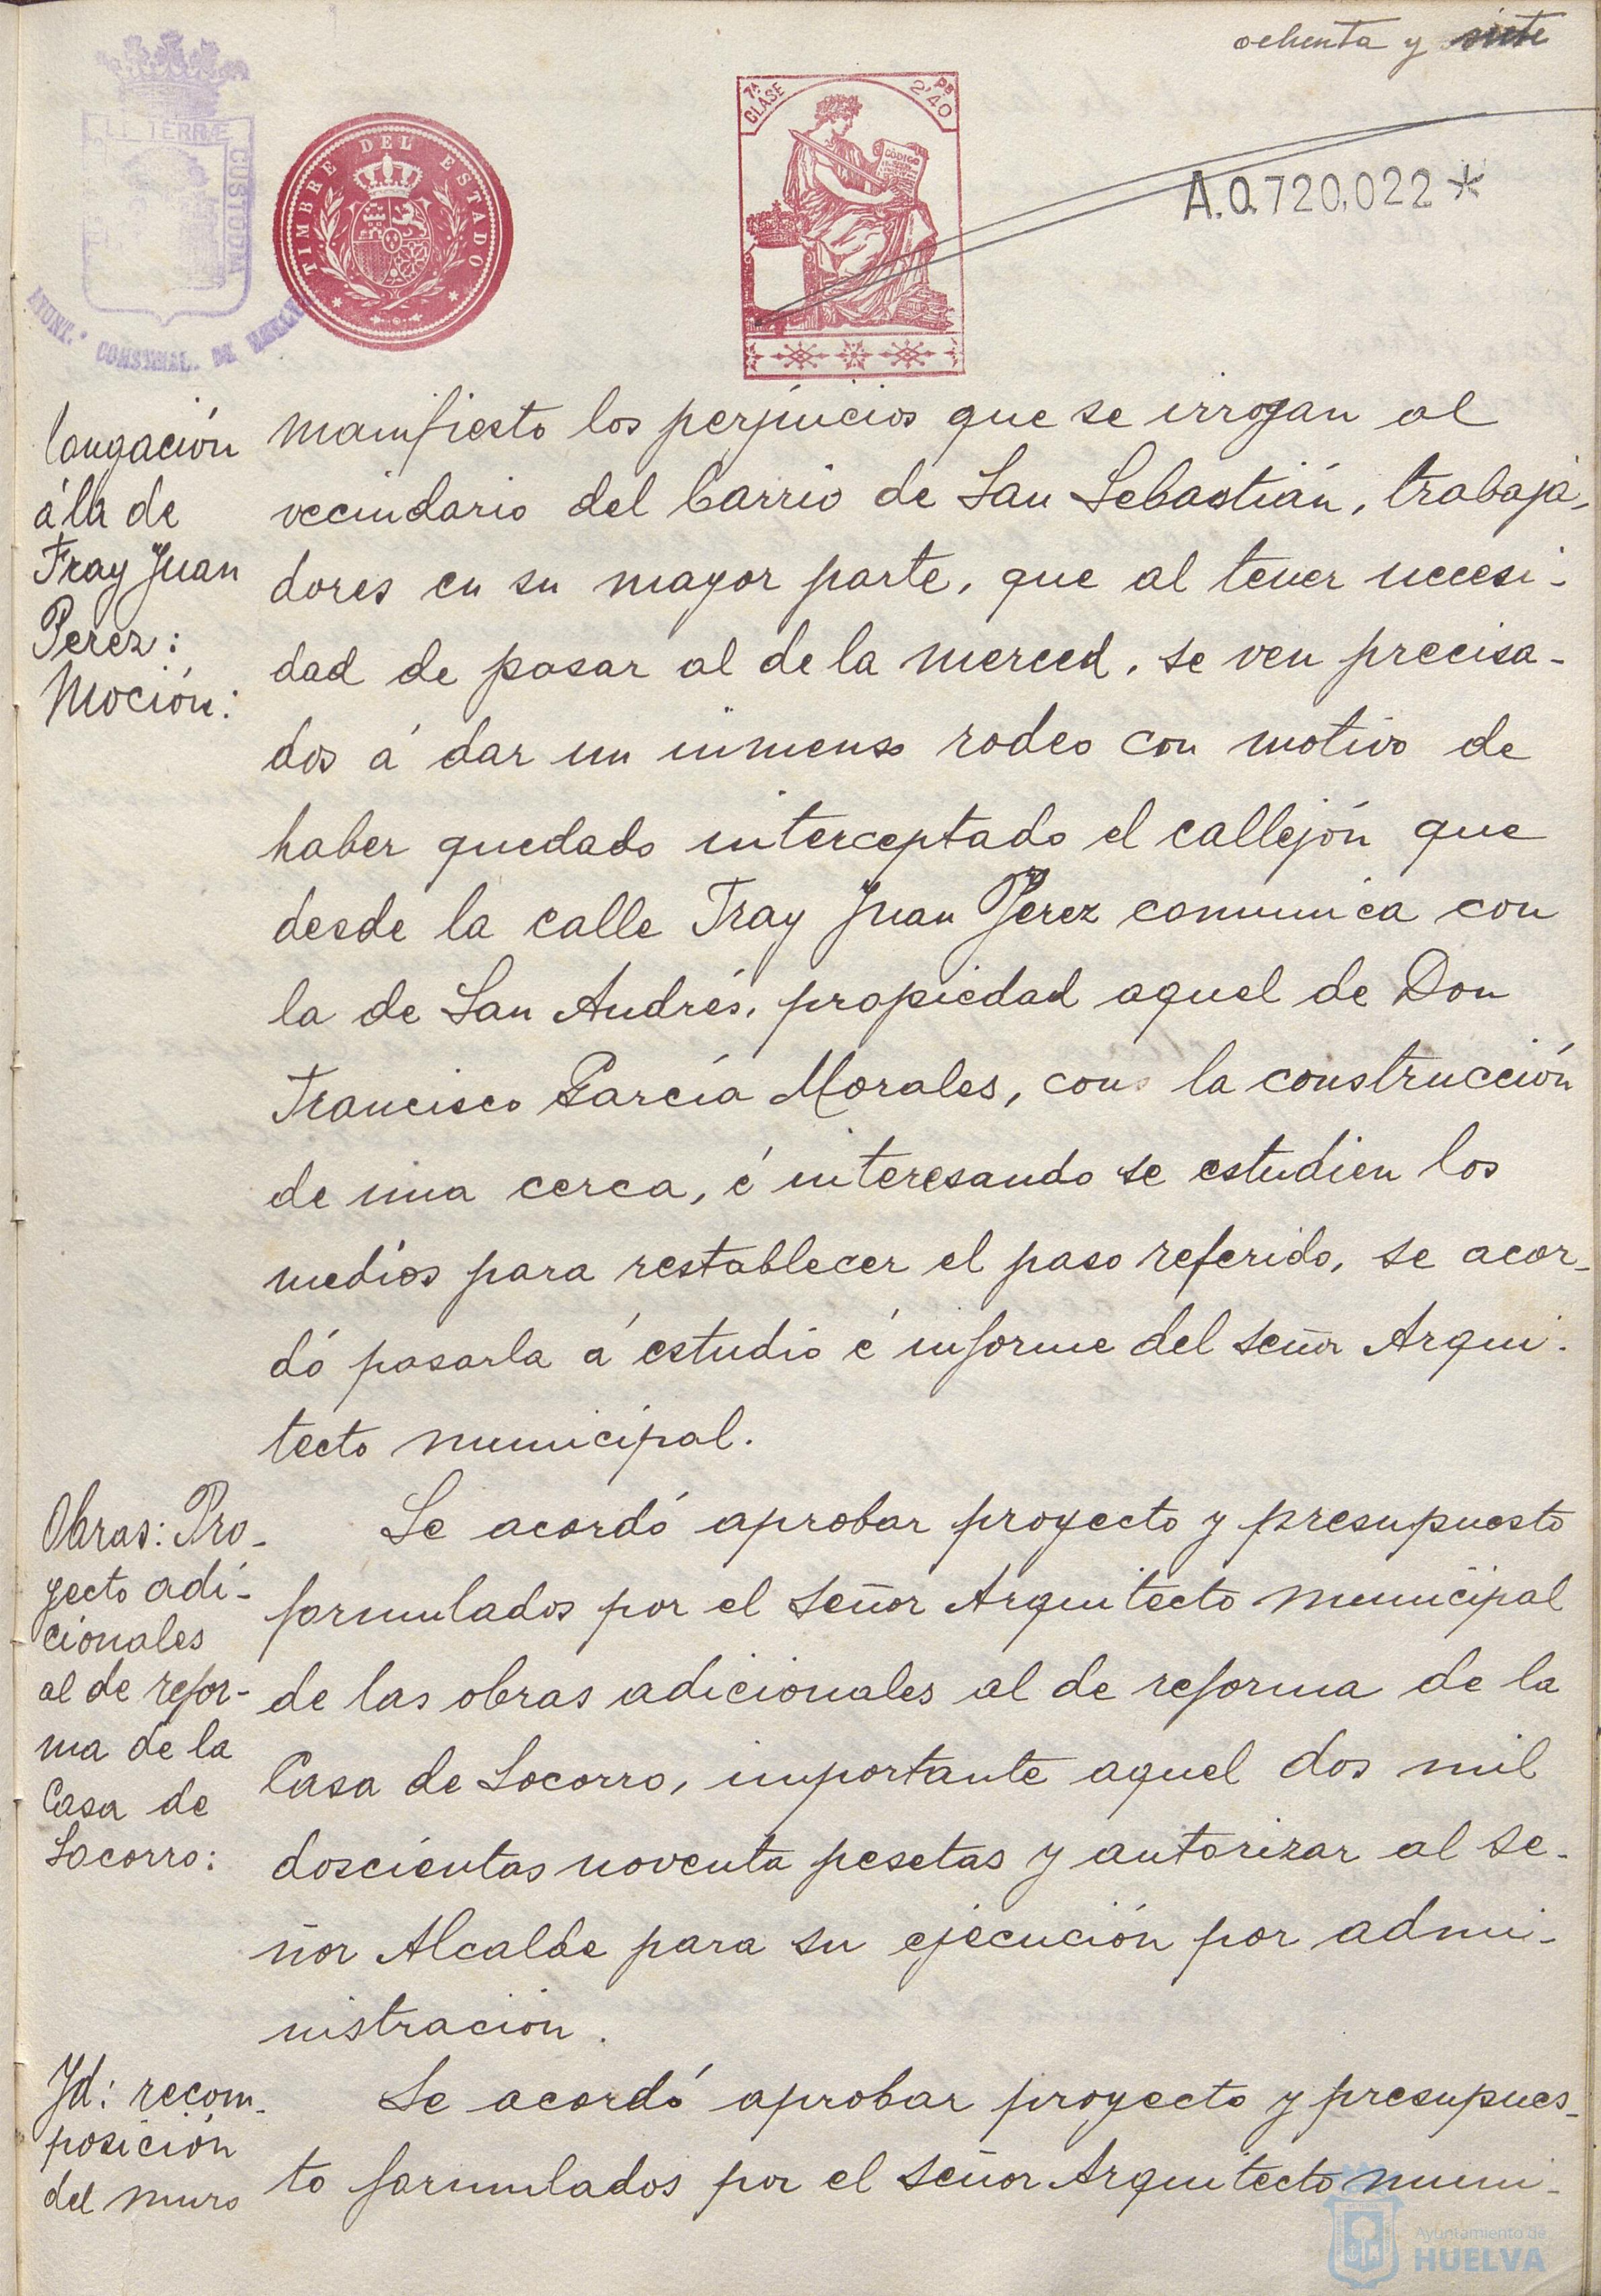 ochenta y siete
LI TERRÆ CUSTODIA
AYUNT.º CONSTNAL. DE HUELVA
TIMBRE DEL ESTADO
7ª CLASE
Ps 2'40
CÓDIGO
A.0.720.022*
longación
á la de
Fray Juan
Perez:
Moción:
manifiesto los perjuicios que se irrogan al
vecindario del barrio de San Sebastián, trabaja-
dores en su mayor parte, que al tener necesi-
dad de pasar al de la merced, se ven precisa-
dos á dar un inmenso rodeo con motivo de
haber quedado interceptado el callejón que
desde la calle Fray Juan Perez comunica con
la de San Andrés, propiedad aquel de Don
Francisco García Morales, con la construcción
de una cerca, é interesando se estudien los
medios para restablecer el paso referido, se acor-
dó pasarla á estudio é informe del señor Arqui-
tecto municipal.
Obras: Pro-
yecto adi-
cionales
al de refor-
ma de la
Casa de
Socorro:
Se acordó aprobar proyecto y presupuesto
formulados por el señor Arquitecto municipal
de las obras adicionales al de reforma de la
Casa de Socorro, importante aquel dos mil
doscientas noventa pesetas y autorizar al se-
ñor Alcalde para su ejecución por admi-
nistración.
Yd: recom-
posición
del muro
Se acordó aprobar proyecto y presupues-
to formulados por el señor Arquitecto muni-
Ayuntamiento de
HUELVA